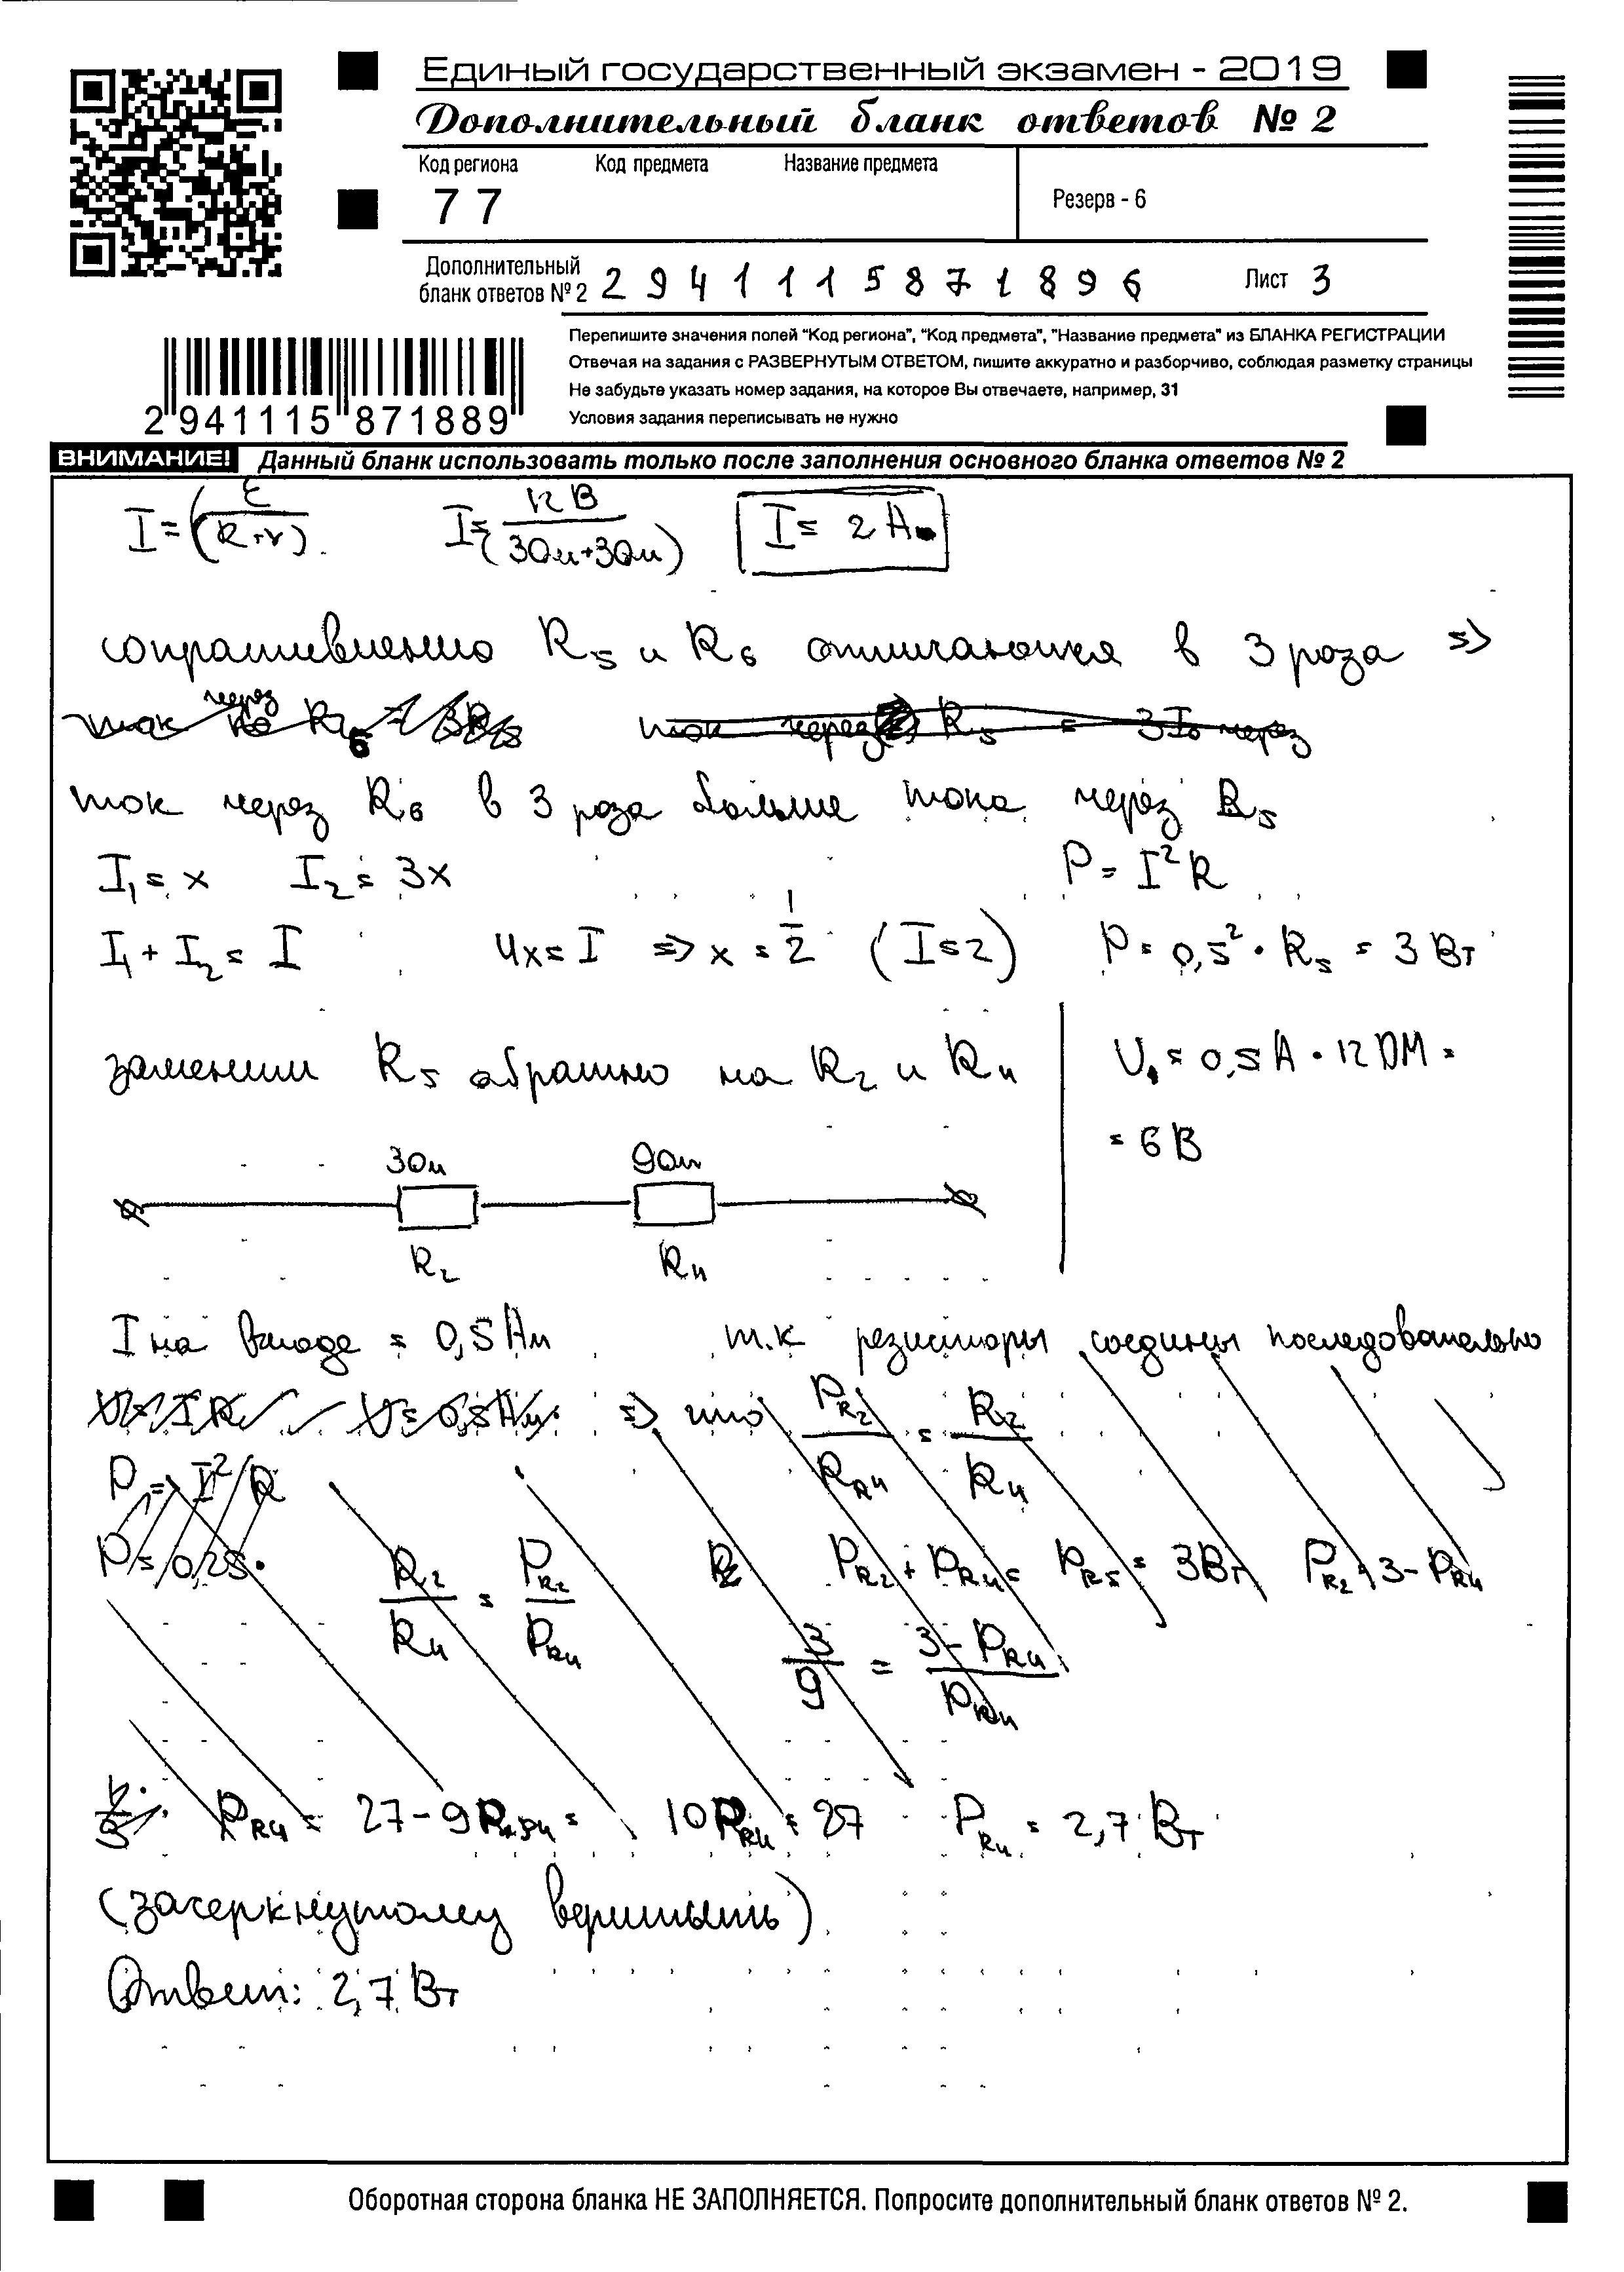 Единый государственный экзамен - 2019
Дополнительный бланк ответов № 2
Код региона Код предмета Название предмета
7 7
Резерв - 6
Дополнительный
бланк ответов № 2 2 9 4 1 1 1 5 8 7 1 8 9 6 Лист 3
Перепишите значения полей "Код региона", "Код предмета", "Название предмета" из БЛАНКА РЕГИСТРАЦИИ
Отвечая на задания с РАЗВЕРНУТЫМ ОТВЕТОМ, пишите аккуратно и разборчиво, соблюдая разметку страницы
Не забудьте указать номер задания, на которое Вы отвечаете, например, 31
Условия задания переписывать не нужно
2 941115 871889
ВНИМАНИЕ! Данный бланк использовать только после заполнения основного бланка ответов № 2
I = ε/(R+r) I = 12 В/(3Ом+3Ом) I = 2 А
R₅ и R₆ отличаются в 3 раза =>
ток через R₆ в 3 раза больше тока через R₅
I₁ = x I₂ = 3x P = I²R
I₁ + I₂ = I 4x = I => x = 1/2 (I = 2) P = 0,5² · R₅ = 3 Вт
заменим R₅ обратно на R₂ и R₄
U = 0,5 А · 12 ОМ =
= 6 В
3Ом 9Ом
R₂ R₄
I на входе = 0,5 Ам т.к резисторы соедины последовательно
=> что P_R₂/P_R₄ = R₂/R₄
P = I²R
P = 0,25 ·
R₂/R₄ = P_R₂/P_R₄ P_R₂ + P_R₄ = P_R₅ = 3Вт P_R₂ = 3 - P_R₄
3/9 = 3 - P_R₄/P_R₄
P_R₄ = 27 - 9P_R₄ = 10P_R₄ = 27 P_R₄ = 2,7 Вт
(зачеркнутому верить)
Ответ: 2,7 Вт
Оборотная сторона бланка НЕ ЗАПОЛНЯЕТСЯ. Попросите дополнительный бланк ответов № 2.